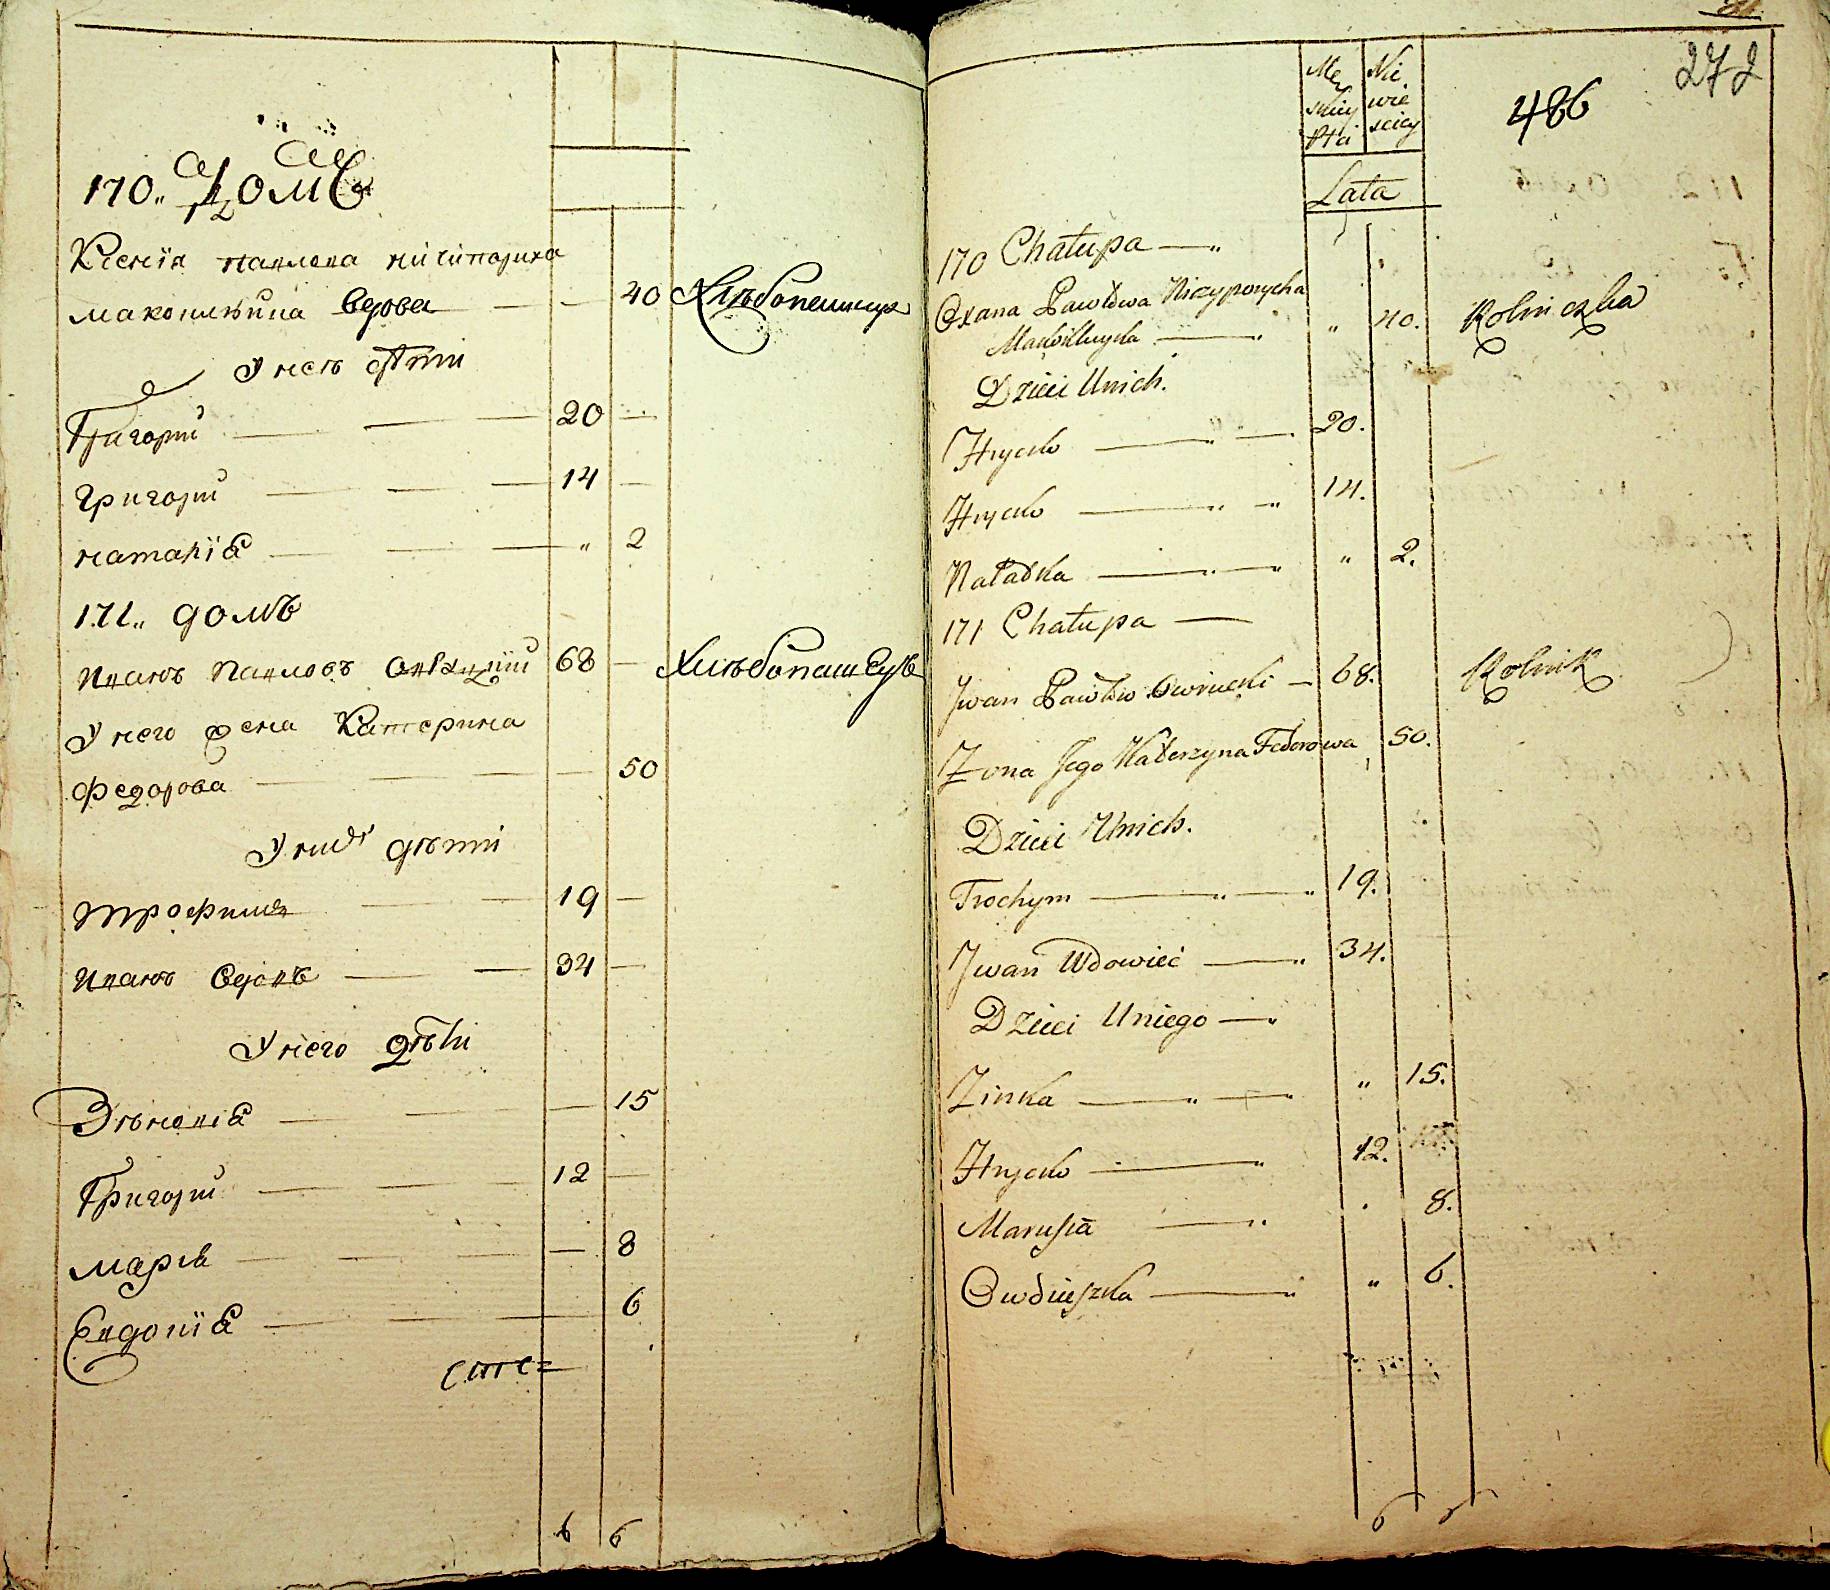 170„ Домъ
Ксенїя павлова ничипориха
макопилѣина вдова — — 40 Хлѣбопашица
У неѣ дѣти
Григорий — — 20 —
Григорий — — 14 —
наталїя — — „ 2
171„ домъ
Иванъ Павловъ 68 — Хлѣбопашецъ
У него жена Катерина
федорова — — — 50
У них дѣти
трофимъ — — 19 —
иванъ вдовъ — — 34 —
У него дѣти
Зѣновїя — — — 15
Григорий — — 12 —
марїя — — — 8
Евдокїя — — 6
6 6
272
486
Męskiey Płci
Niewieściey
Lata
170 Chałupa — „
Oxana Pawłowa Niczyporycha
— „ 40. Rolniczka
Dzieci Unich.
Hrycko — „ — 20.
Hrycko — „ — „ 14.
Natałka — „ — „ „ 2.
171 Chałupa —
Jwan Pawłow Owrucki — 68. Rolnik
Żona Jego Katerzyna Fedorowa 50.
Dzieci Unich.
Trochym — „ — „ 19.
Jwan Wdowiec — „ 34.
Dzieci Uniego — „
Zinka — „ — „ „ 15.
Hrycko — „ 12.
Marusia — „ 8.
Owdiuszka — „ „ 6.
6